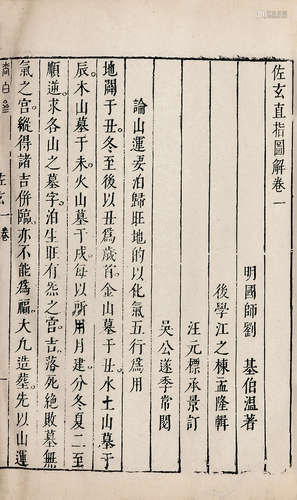 佐玄直指圖解卷一
明國師劉　基伯溫著
後學江之棟孟隆輯
汪元標承景訂
吳公遂季常閱
論山運要泊歸旺地的以化氣五行爲用
地闢于丑冬至後以丑爲歲首金山墓于丑水土山墓于
辰木山墓于未火山墓于戌每以所用月建分冬夏二至
順逆求各山之墓字泊生旺有炁之宮吉落死絕敗墓無
氣之宮縱得諸吉併臨亦不能爲福大凡造葬先以山運
佐玄一卷